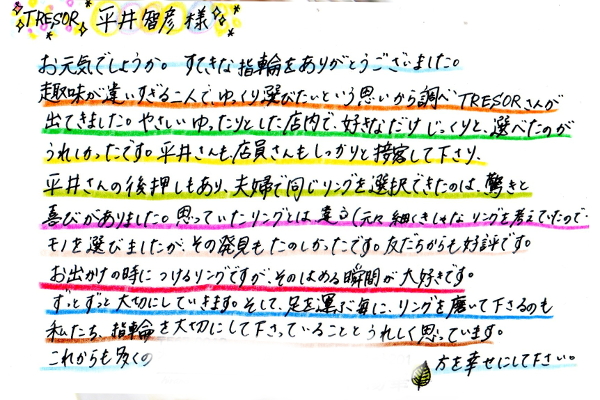 TRESOR 平井智彦様
お元気でしょうか。すてきな指輪をありがとうございました。
趣味が違いすぎる二人で、ゆっくり選びたいという思いから調べTRESORさんが
出てきました。やさしいゆったりとした店内で、好きなだけじっくりと、選べたのが
うれしかったです。平井さんも店員さんもしっかりと接客して下さり、
平井さんの後押しもあり、夫婦で同じリングを選択できたのは、驚きと
喜びがありました。思っていたリングとは、違う(元々細くきしゃなリングを考えていたので
モノを選びましたが、その発見もたのしかったです。友だちからも好評です。
お出かけの時につけるリングですが、そのはめる瞬間が大好きです。
ずっとずっと大切にしていきます。そして、足を運ぶ毎に、リングを磨いて下さるのも
私たち、指輪を大切にして下さっていることとうれしく思っています。
これからも多くの 方を幸せにして下さい。